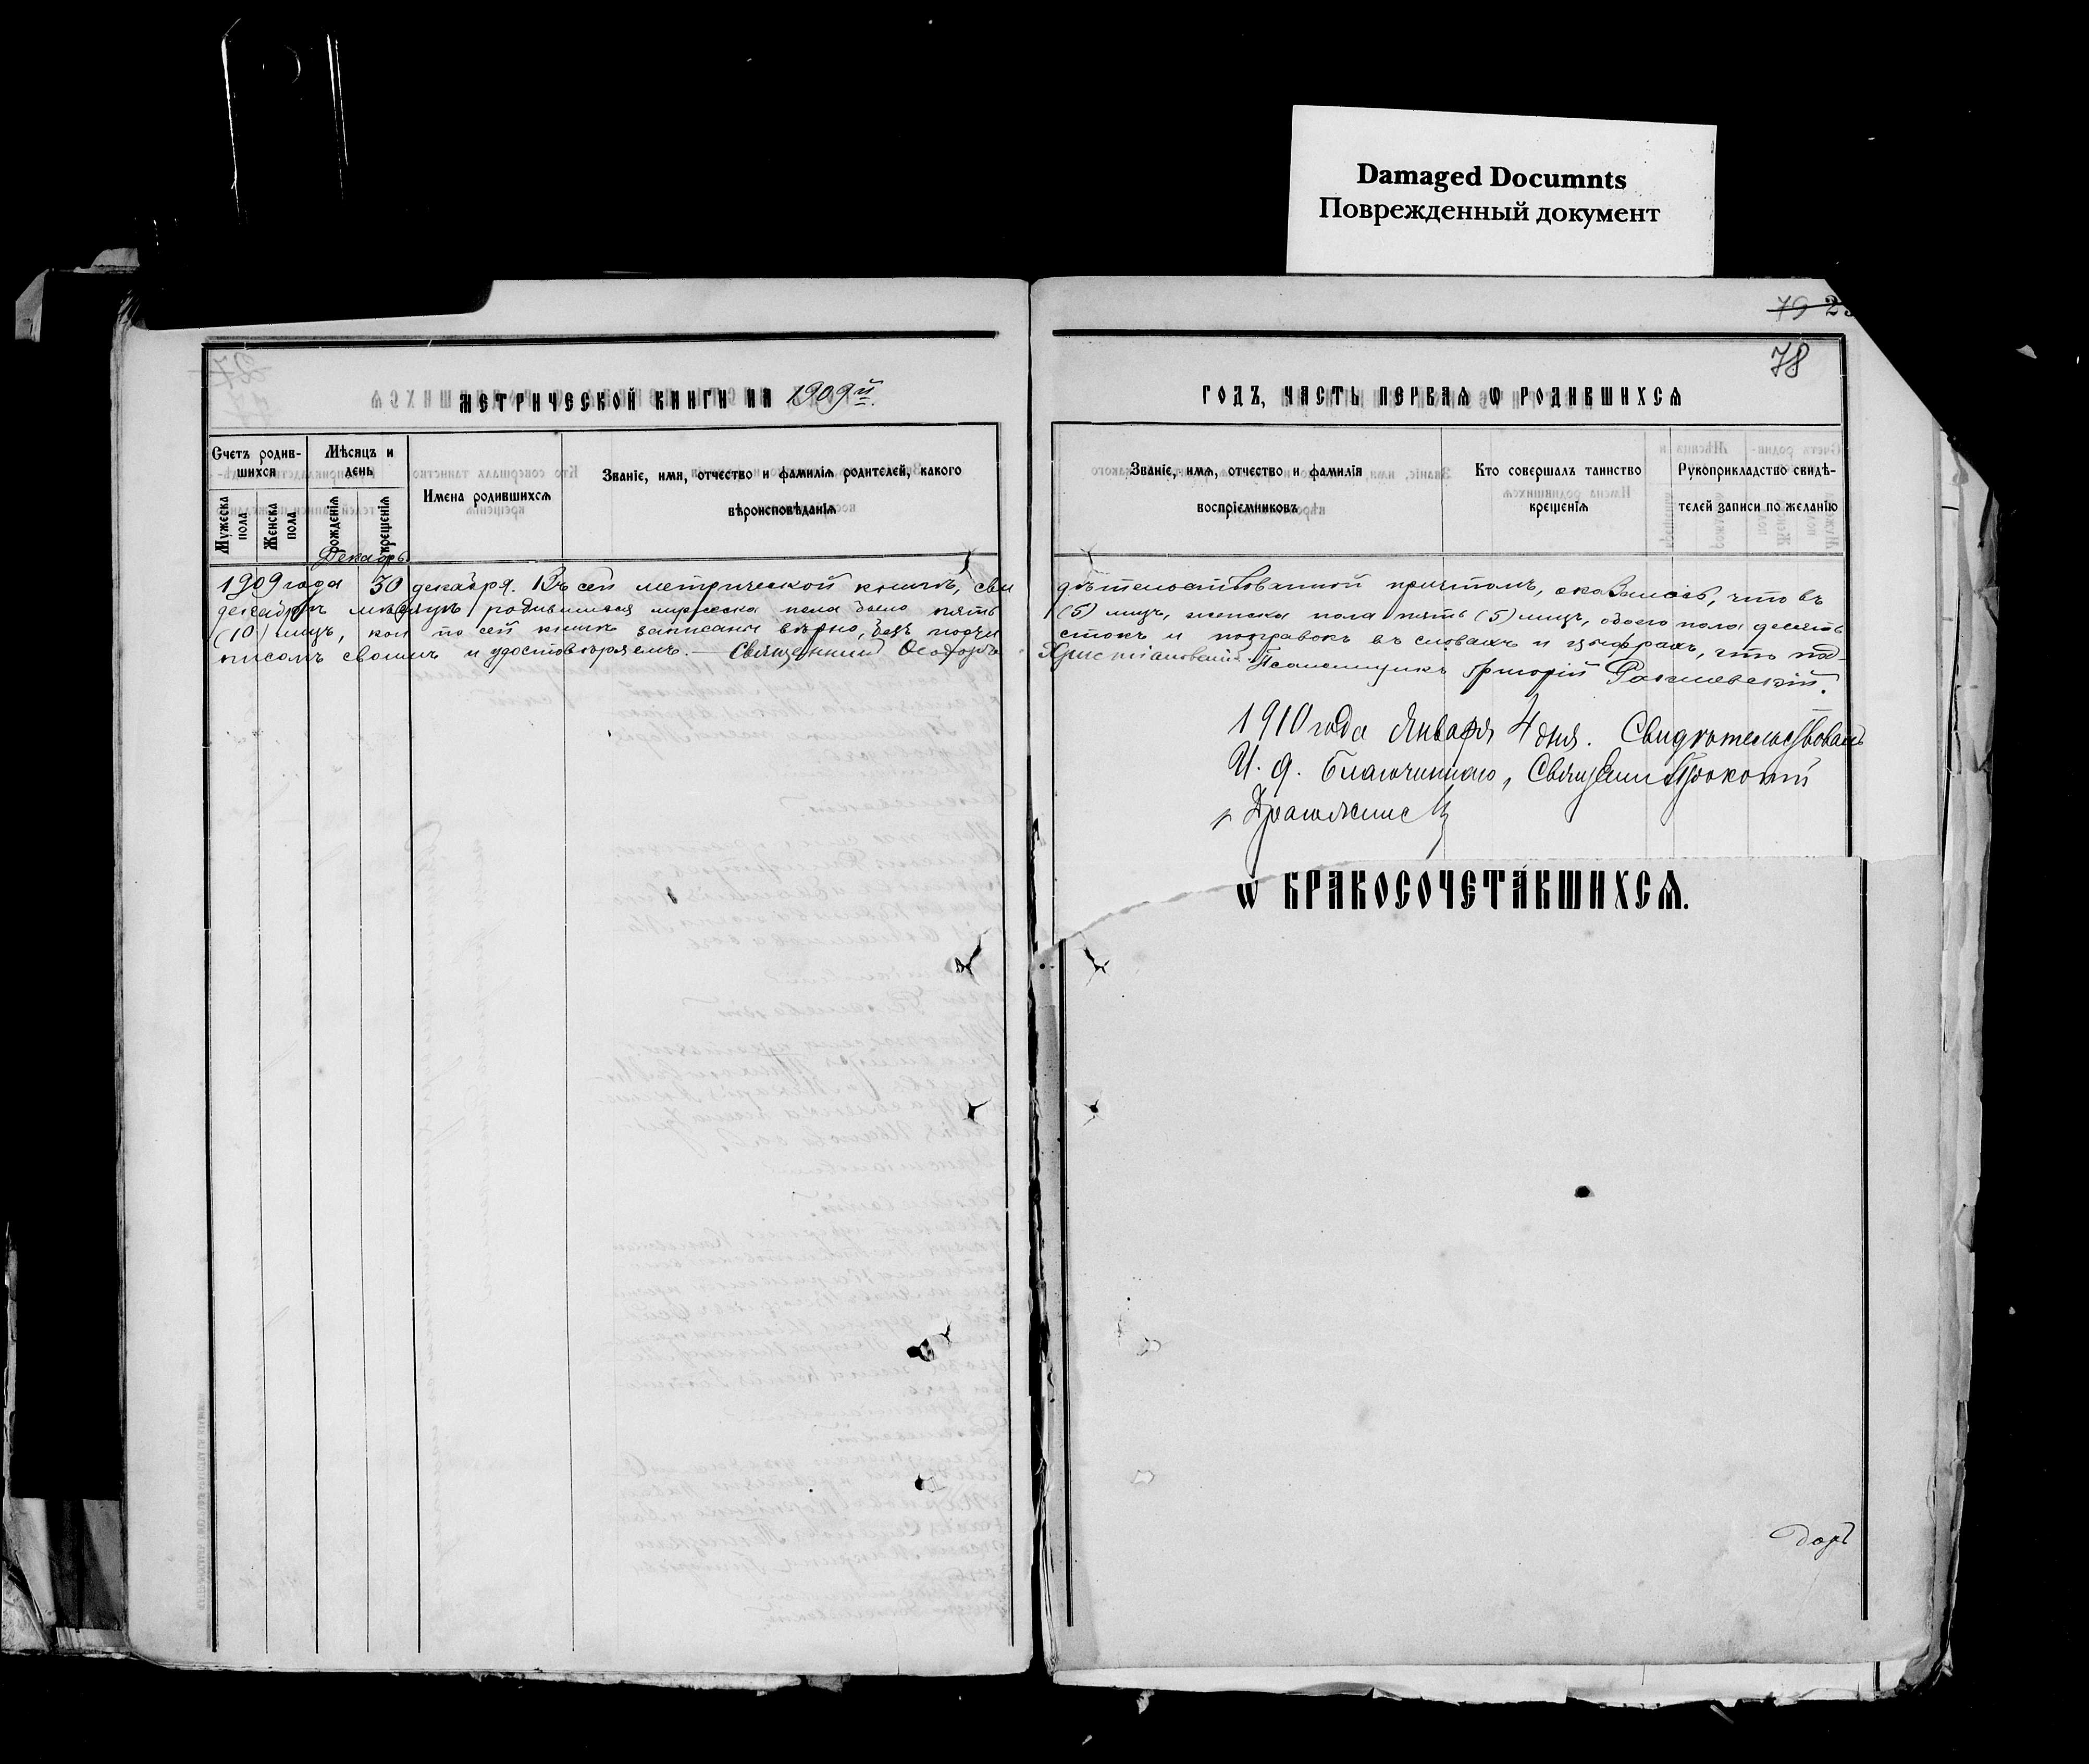 Damaged Documnts
Поврежденный документ
79 2
78
МЕТРИЧЕСКОЙ КНИГИ НА 1909й
ГОДЪ, ЧАСТЬ ПЕРВАЯ Ѡ РОДИВШИХСЯ
Счетъ родив-
шихся
Мужеска пола
Женска пола
Мѣсяцъ и
день
рожденія
крещенія
Имена родившихся
Званіе, имя, отчество и фамилія родителей, какого
вѣроисповѣданія
Званіе, имя, отчество и фамилія
воспріемниковъ
Кто совершалъ таинство
крещенія
Рукоприкладство свидѣ-
телей записи по желанію
Декабрь
1909 года 30 декабря. Въ сей метрической книгѣ, сви
дѣтельствованной причтомъ, оказалось, что въ
декабрѣ мѣсяцѣ родившихся мужеска пола было пять
(5) лицъ, женска пола пять (5) лицъ, обоего пола десять
(10) лицъ, кои по сей книгѣ записаны вѣрно, безъ подчи
стокъ и поправокъ въ словахъ и цыфрахъ, что под-
писомъ своимъ и удостовѣряемъ. Священникъ Ѳеодоръ
Христіановскій. Псаломщикъ Григорій
1910 года Января 4 дня. Свидѣтельствовалъ
И. д. Благочиннаго, Священ Прокопій
Ѡ БРАКОСОЧЕТАВШИХСЯ.